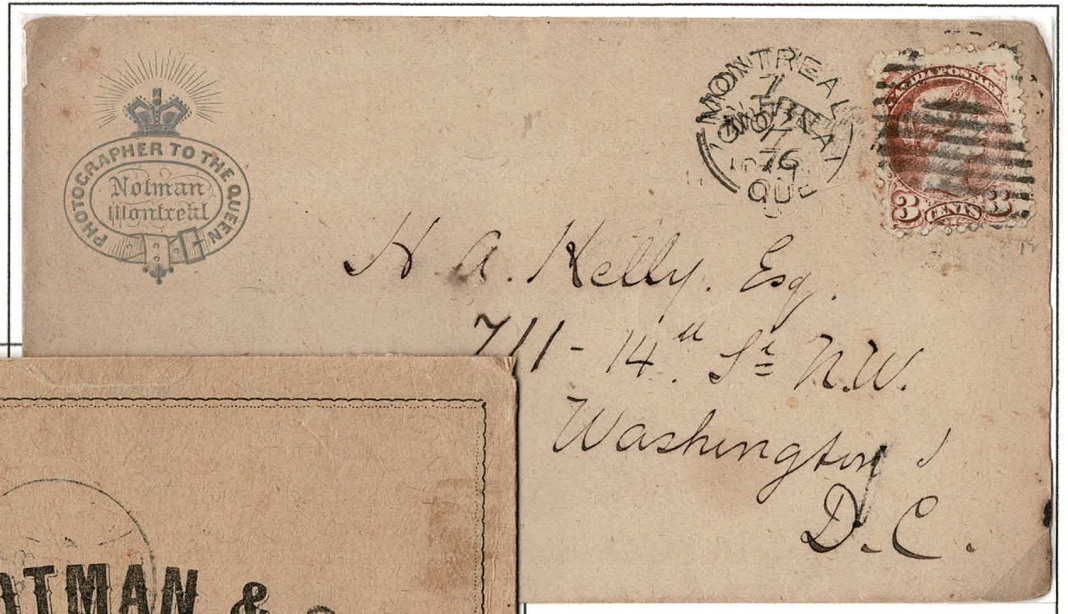 PHOTOGRAPHER TO THE QUEEN
Notman
Montreal
MONTREAL
7
76
QUE
CANADA POSTAGE
3 CENTS 3
H A. Kelly. Esq.
711 - 14th St N.W.
Washington
D.C.
OTMAN &